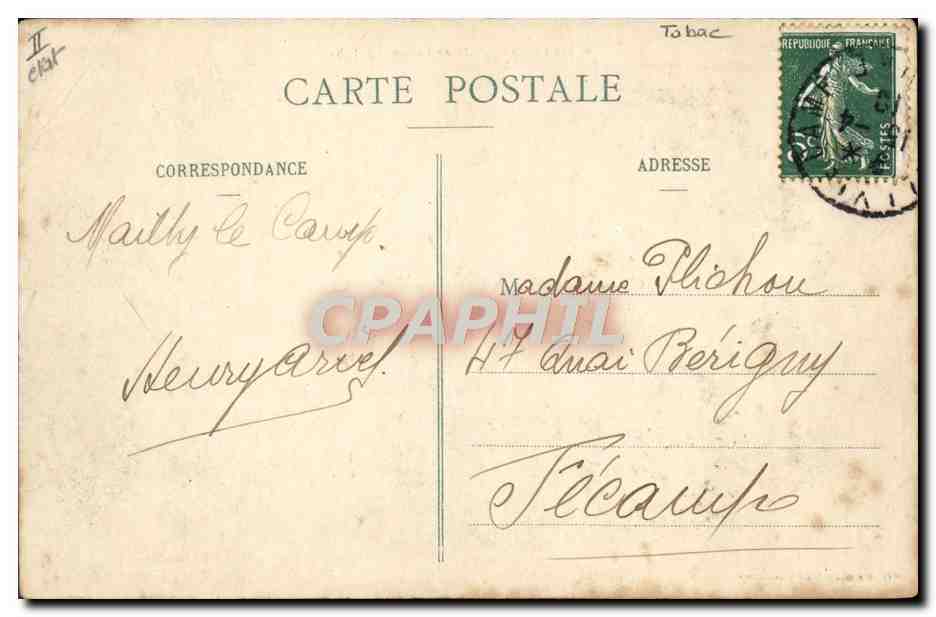 II
état
Tabac
RÉPUBLIQUE FRANÇAISE
POSTES
CARTE POSTALE
CORRESPONDANCE
ADRESSE
Mailly le Camp.
Henry
Madame Plichou
47 Quai Bérigny
Fécamp
CPAPHIL